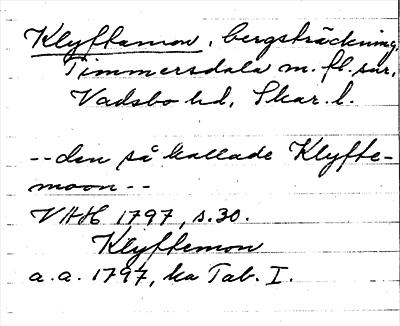 Klyftamon, bergsträckning,
Timmersdala m. fl. snr,
Vadsbo hd, Skar. l.
--den så kallade Klyfte-
moon--
VHH 1797, s. 30.
Klyftemon
a. a. 1797, ka Tab. I.